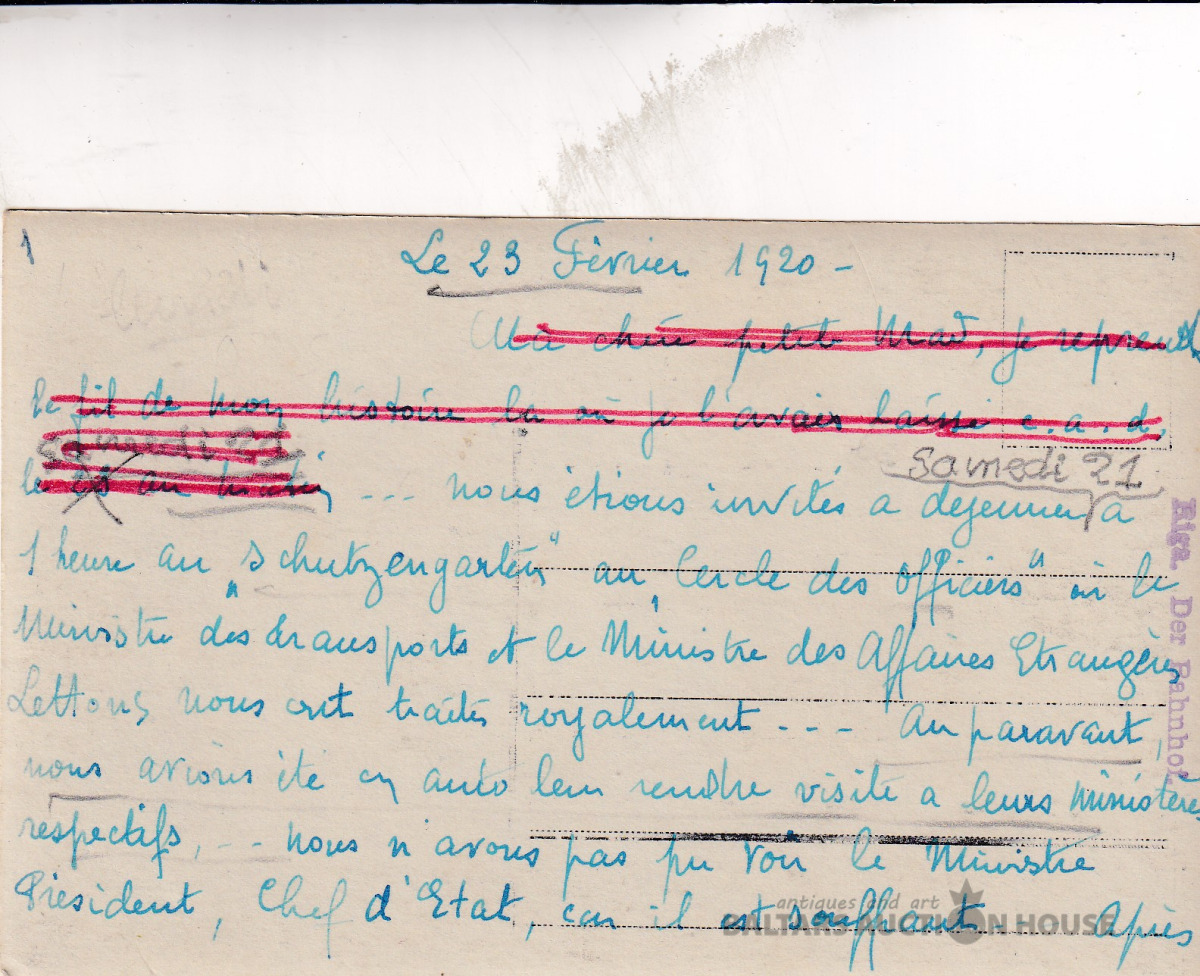 1
Le 23 Février 1920 -
Ma chère petite Mad, je reprends
le fil de mon histoire là où je l'avais laissé c.a.d.
samedi 21
le au matin --- nous étions invités a dejeuner a
samedi 21
1 heure au "Schutzengarten" au "Cercle des Officiers" où le
Ministre des transports et le Ministre des Affaires Etrangères
Lettons nous ont traités royalement --- Au paravant,
nous avions été en auto leur rendre visite a leurs Ministères
respectifs, --- nous n'avons pas pu voir le Ministre
Président, Chef d'Etat, car il est souffrant Après
Riga. Der Bahnhof
antiques and art
BALTARS AUCTION HOUSE